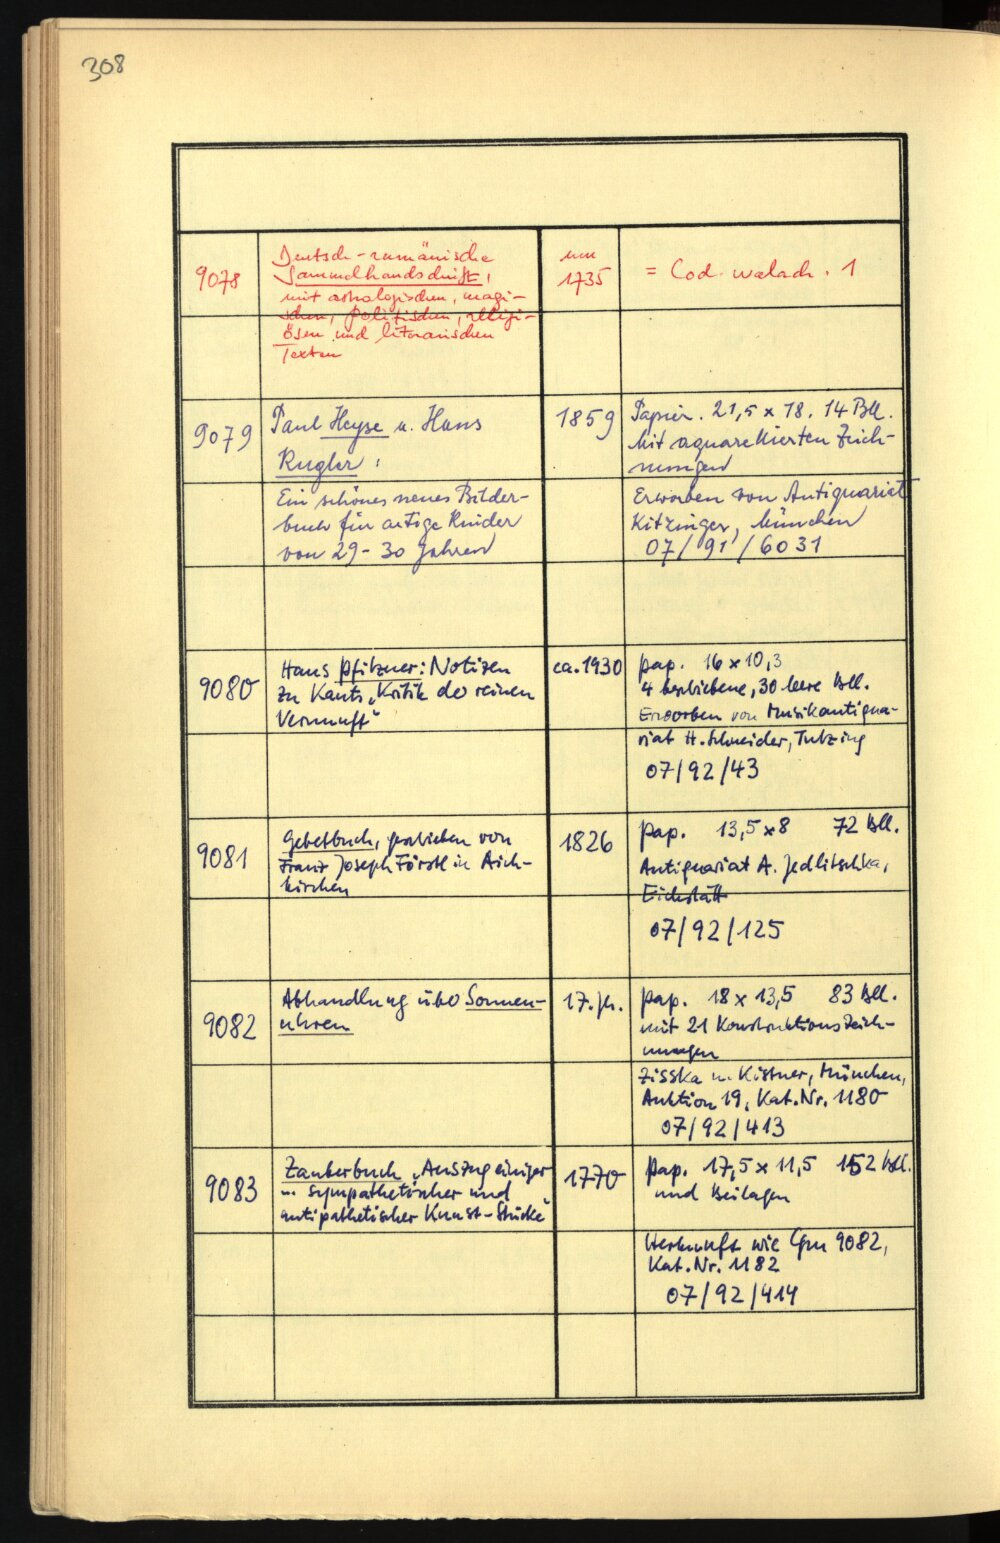 308
9078
Deutsch-rumänische
Sammelhandschrift,
mit astrologischen, magi-
schen, politischen, religi-
ösen und literarischen
Texten
um
1735
= Cod. walach. 1
9079
Paul Heyse u. Hans
Kugler:
Ein schönes neues Bilder-
buch für artige Kinder
von 29-30 Jahren
1859
Papier. 21,5 x 18. 14 Bll.
Mit aquarellierten Zeich-
nungen
Erworben von Antiquariat
Kitzinger, München
07/91/6031
9080
Hans Pfitzner: Notizen
zu Kants „Kritik der reinen
Vernunft"
ca. 1930
Pap. 16 x 10,3
4 beschriebene, 30 leere Bll.
Erworben von Musikantiqua-
riat H. Schneider, Tutzing
07/92/43
9081
Gebetbuch, geschrieben von
Franz Joseph Förstl in Aich-
kirchen
1826
Pap. 13,5 x 8 72 Bll.
Antiquariat A. Jedlitschka,
Eichstätt
07/92/125
9082
Abhandlung über Sonnen-
uhren
17. Jh.
Pap. 18 x 13,5 83 Bll.
mit 21 Konstruktionszeich-
nungen
Zisska u. Kistner, München,
Auktion 19, Kat. Nr. 1180
07/92/413
9083
Zauberbuch „Auszug einiger
sympathetischer und
antipathetischer Kunst-Stücke"
1770
Pap. 17,5 x 11,5 152 Bll.
und Beilagen
Herkunft wie Cgm 9082,
Kat. Nr. 1182
07/92/414